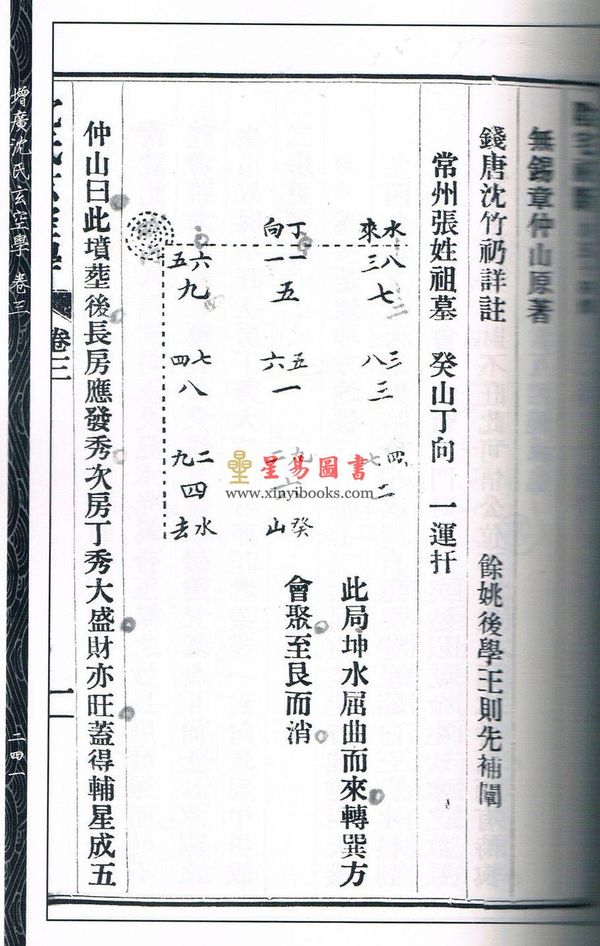 無錫章仲山原著
錢唐沈竹礽詳註
餘姚後學王則先補闡
常州張姓祖墓　癸山丁向　一運扦
水來　丁向
八三　一一　六五
七　五　九
三八　五六　七四
三　一　八
四七　九二　二九
二　六　四
癸山　水去
此局坤水屈曲而來轉巽方
會聚至艮而消
仲山曰此墳塟後長房應發秀次房丁秀大盛財亦旺蓋得輔星成五
卷三　一
增廣沈氏玄空學　卷三　二四一
星易圖書
www.xinyibooks.com